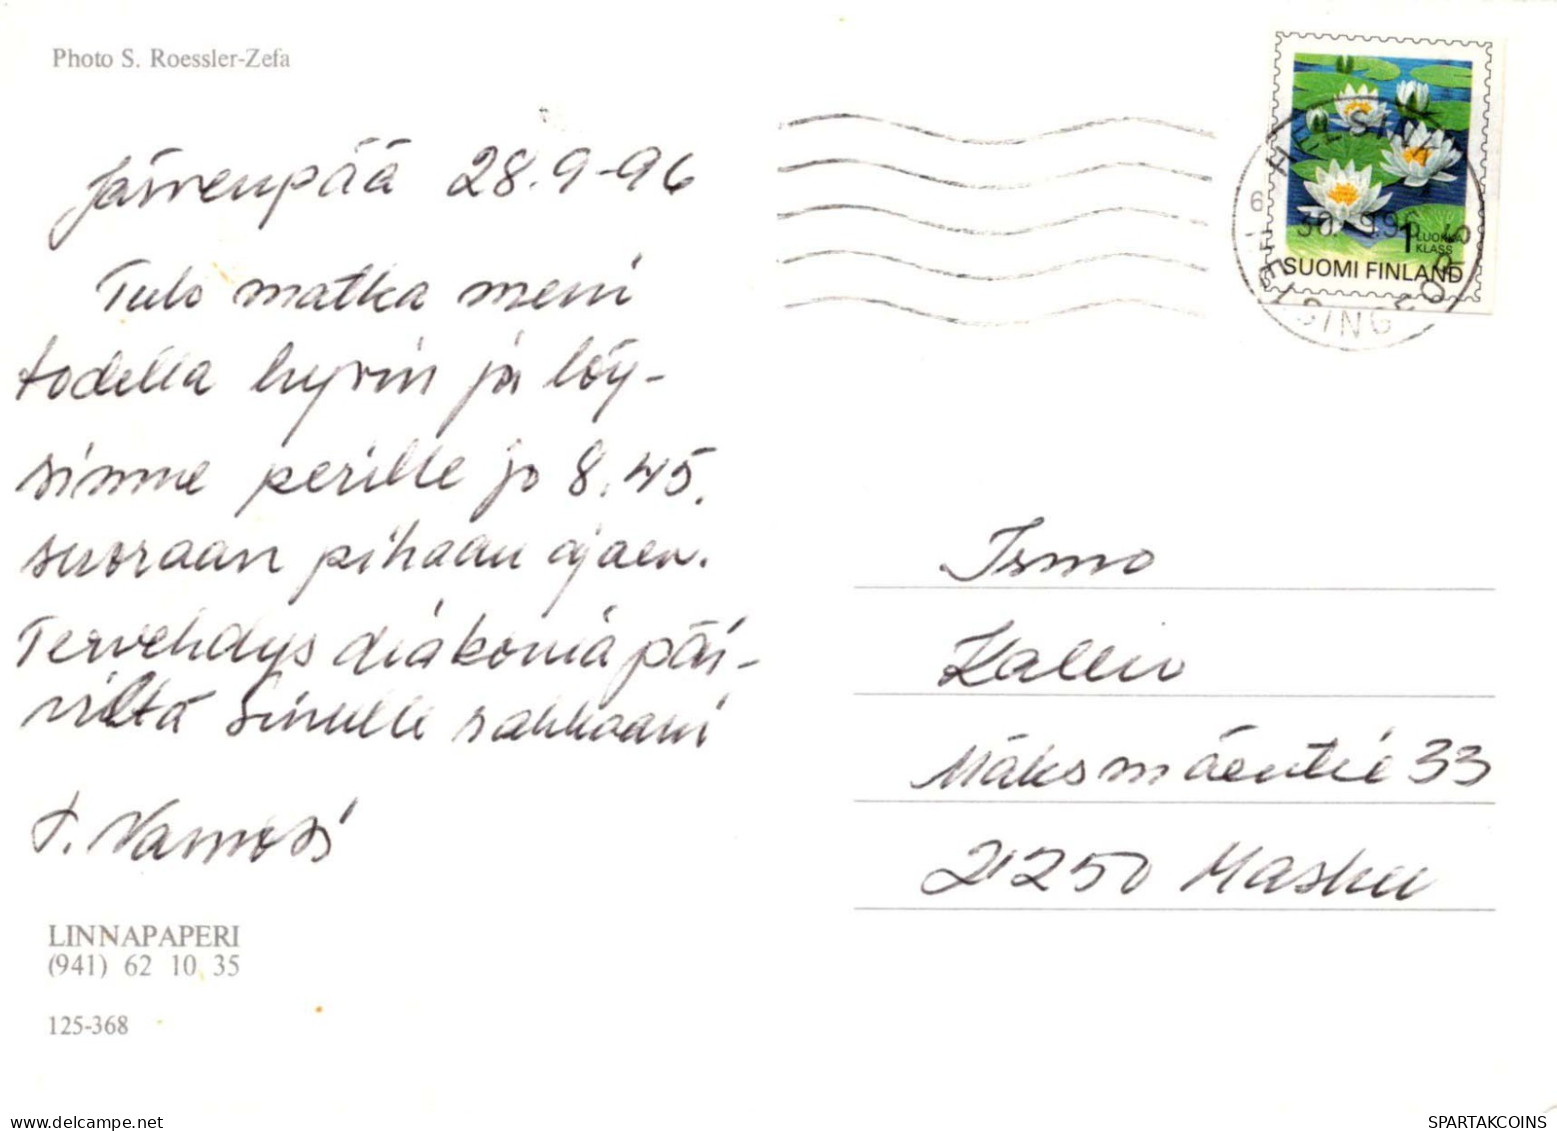 Photo S. Roessler-Zefa
Järvenpää 28.9-96
Tulo matka meni
todella hyvin ja löy-
sinne perille jo 8.45.
suoraan pihaan ajaen.
Tervehdys diakoniapäi-
viltä Sinulle rakkaani
T.
LINNAPAPERI
(941) 62 10 35
125-368
1 LUOKKA
KLASS
SUOMI FINLAND
HELSINKI
30.9.96
HELSINGFORS
Ismo
Kallio
Mäksmäentie 33
21250 Masku
SPARTAKCOINS